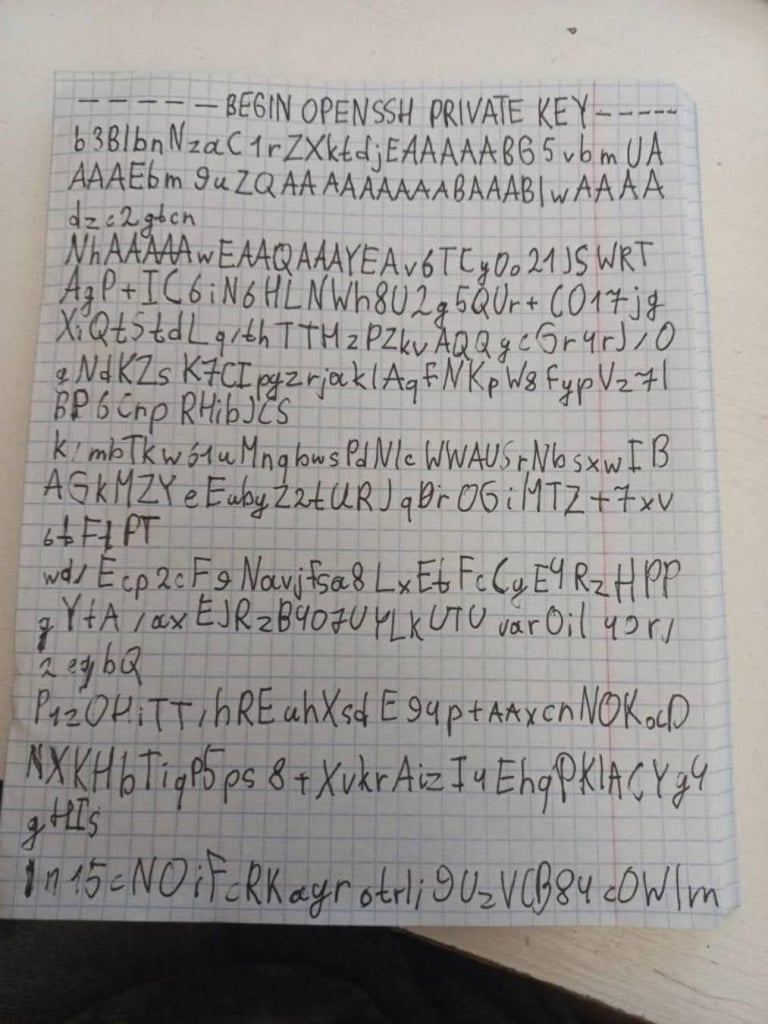 -----BEGIN OPENSSH PRIVATE KEY-----
b3BlbnNzaC1rZXktdjEAAAAABG5vbmUA
AAAEbm9uZQAAAAAAAAABAAABlwAAAA
dzc2gtcn
NhAAAAAwEAAQAAAYEAv6TCyOo21JSWRT
AgP+IC6iN6HLNWh8U2g5QUr+CO17jg
XiQtStdLq/thTTHzPZkvAQQgcGr4rJ/O
gNdKZsK7CIpgzrjaklAqfNKpW8fypVz7l
BP6CnpRHibJCS
k/mbTkw61uMnqbwsPdNlcWWAUSrNbsxwIB
AGkMZYeEubyZ2tURJqDrOGiMTZ+7xv
6tFfPT
wd/Ecp2cF9NavjfSa8LxEtFcCyE4RzHPP
gYtA/axEJRzB4O7UYLkUTUvarOil4Jr/
2egbQ
P1zOHiTT/hREuhXsdE94p+AAxcnNOKocD
NXKHbTiqP5ps8+XvkrAizI4EhqPKlACYg4
gHIs
1n15cNOiFcRKagrotrli9UzVCB84cOWlm